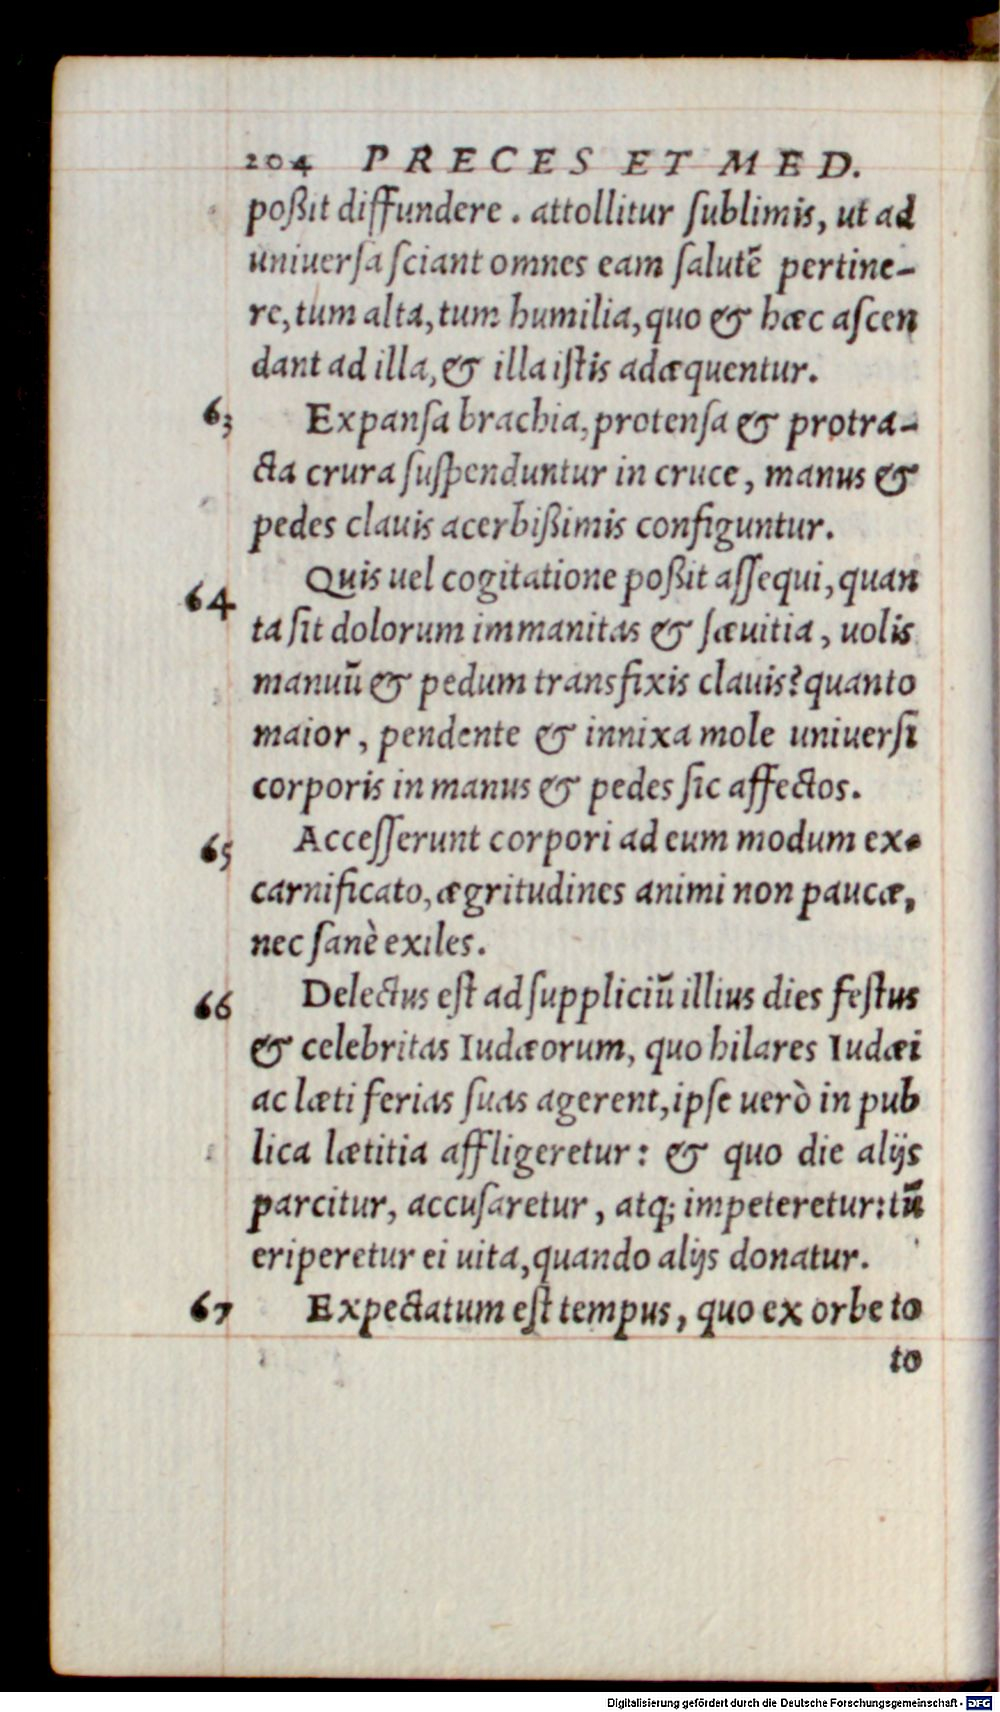 204 PRECES ET MED.
poßit diffundere . attollitur ſublimis, ut ad
uniuerſa ſciant omnes eam ſalutē pertine-
re, tum alta, tum humilia, quo & hæc aſcen
dant ad illa, & illa iſtis adæquentur.
63 Expanſa brachia, protenſa & protra-
cta crura ſuſpenduntur in cruce, manus &
pedes clauis acerbißimis configuntur.
64 Quis uel cogitatione poßit aſſequi, quan
ta ſit dolorum immanitas & ſæuitia, uolis
manuū & pedum transfixis clauis? quanto
maior, pendente & innixa mole uniuerſi
corporis in manus & pedes ſic affectos.
65 Acceſſerunt corpori ad eum modum ex-
carnificato, ægritudines animi non paucæ,
nec ſanè exiles.
66 Delectus eſt ad ſuppliciū illius dies feſtus
& celebritas Iudæorum, quo hilares Iudæi
ac læti ferias ſuas agerent, ipſe uerò in pub
lica lætitia affligeretur: & quo die alijs
parcitur, accuſaretur, atq; impeteretur: tū
eriperetur ei uita, quando alijs donatur.
67 Expectatum eſt tempus, quo ex orbe to
to
Digitalisierung gefördert durch die Deutsche Forschungsgemeinschaft - DFG